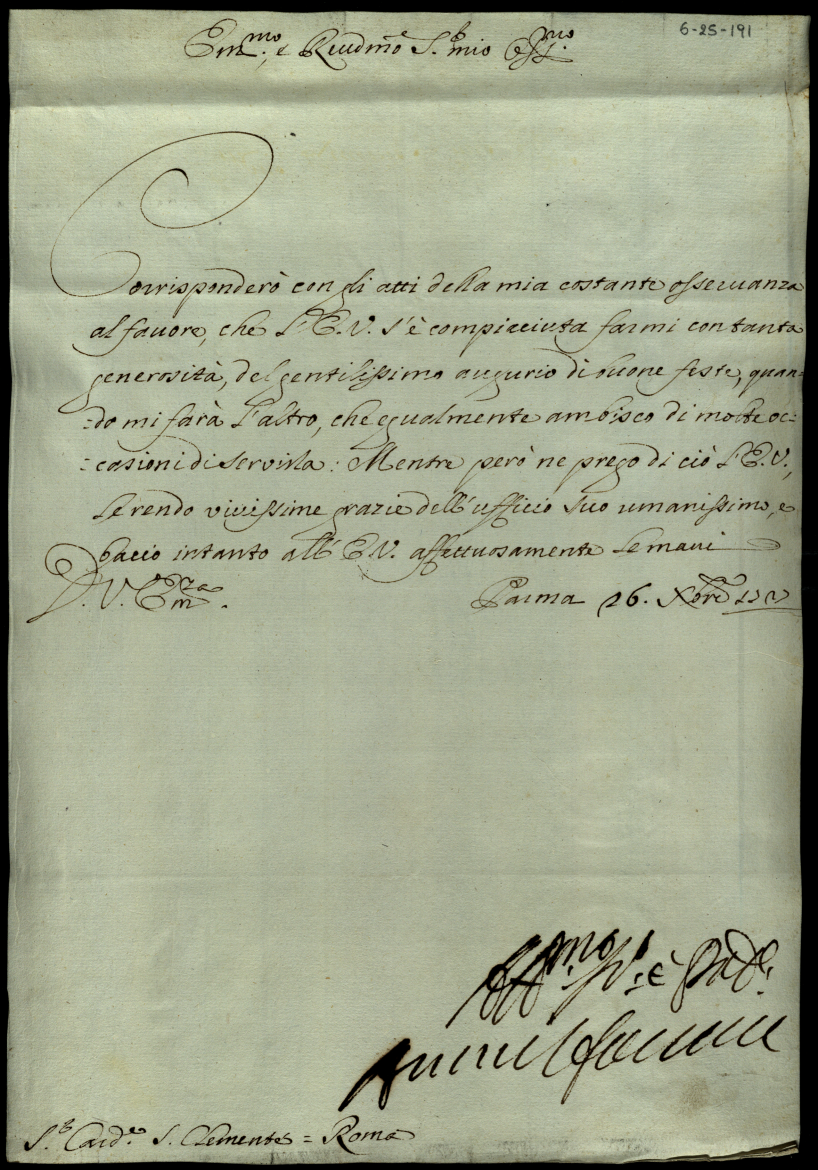 6-25-191
Em.mo, e Reudmo S.r mio Oss.mo
Corrisponderò con gli atti della mia costante osseruanza
al fauore, che l'E.V. s'è compiaciuta farmi con tanta
generosità, del gentilissimo augurio di buone feste, quan=
=do mi farà l'altro, che egualmente ambisco di molte oc=
=casioni di servirla: Mentre però ne prego di ciò l'E.V.,
le rendo vivissime grazie dell'ufficio suo umanissimo, e
bacio intanto all'E.V. affettuosamente le mani
D. V. Em.za Parma 26. Xbre
Aff.mo S.r è
S.r Card.e S. Clemente = Roma